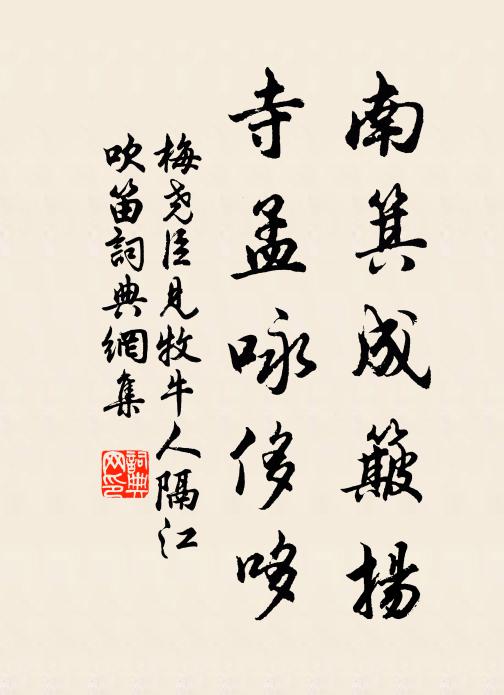 南箕成簸揚
寺孟咏侈哆
梅尧臣見牧牛人隔江
吹笛詞典網集
詞典網印